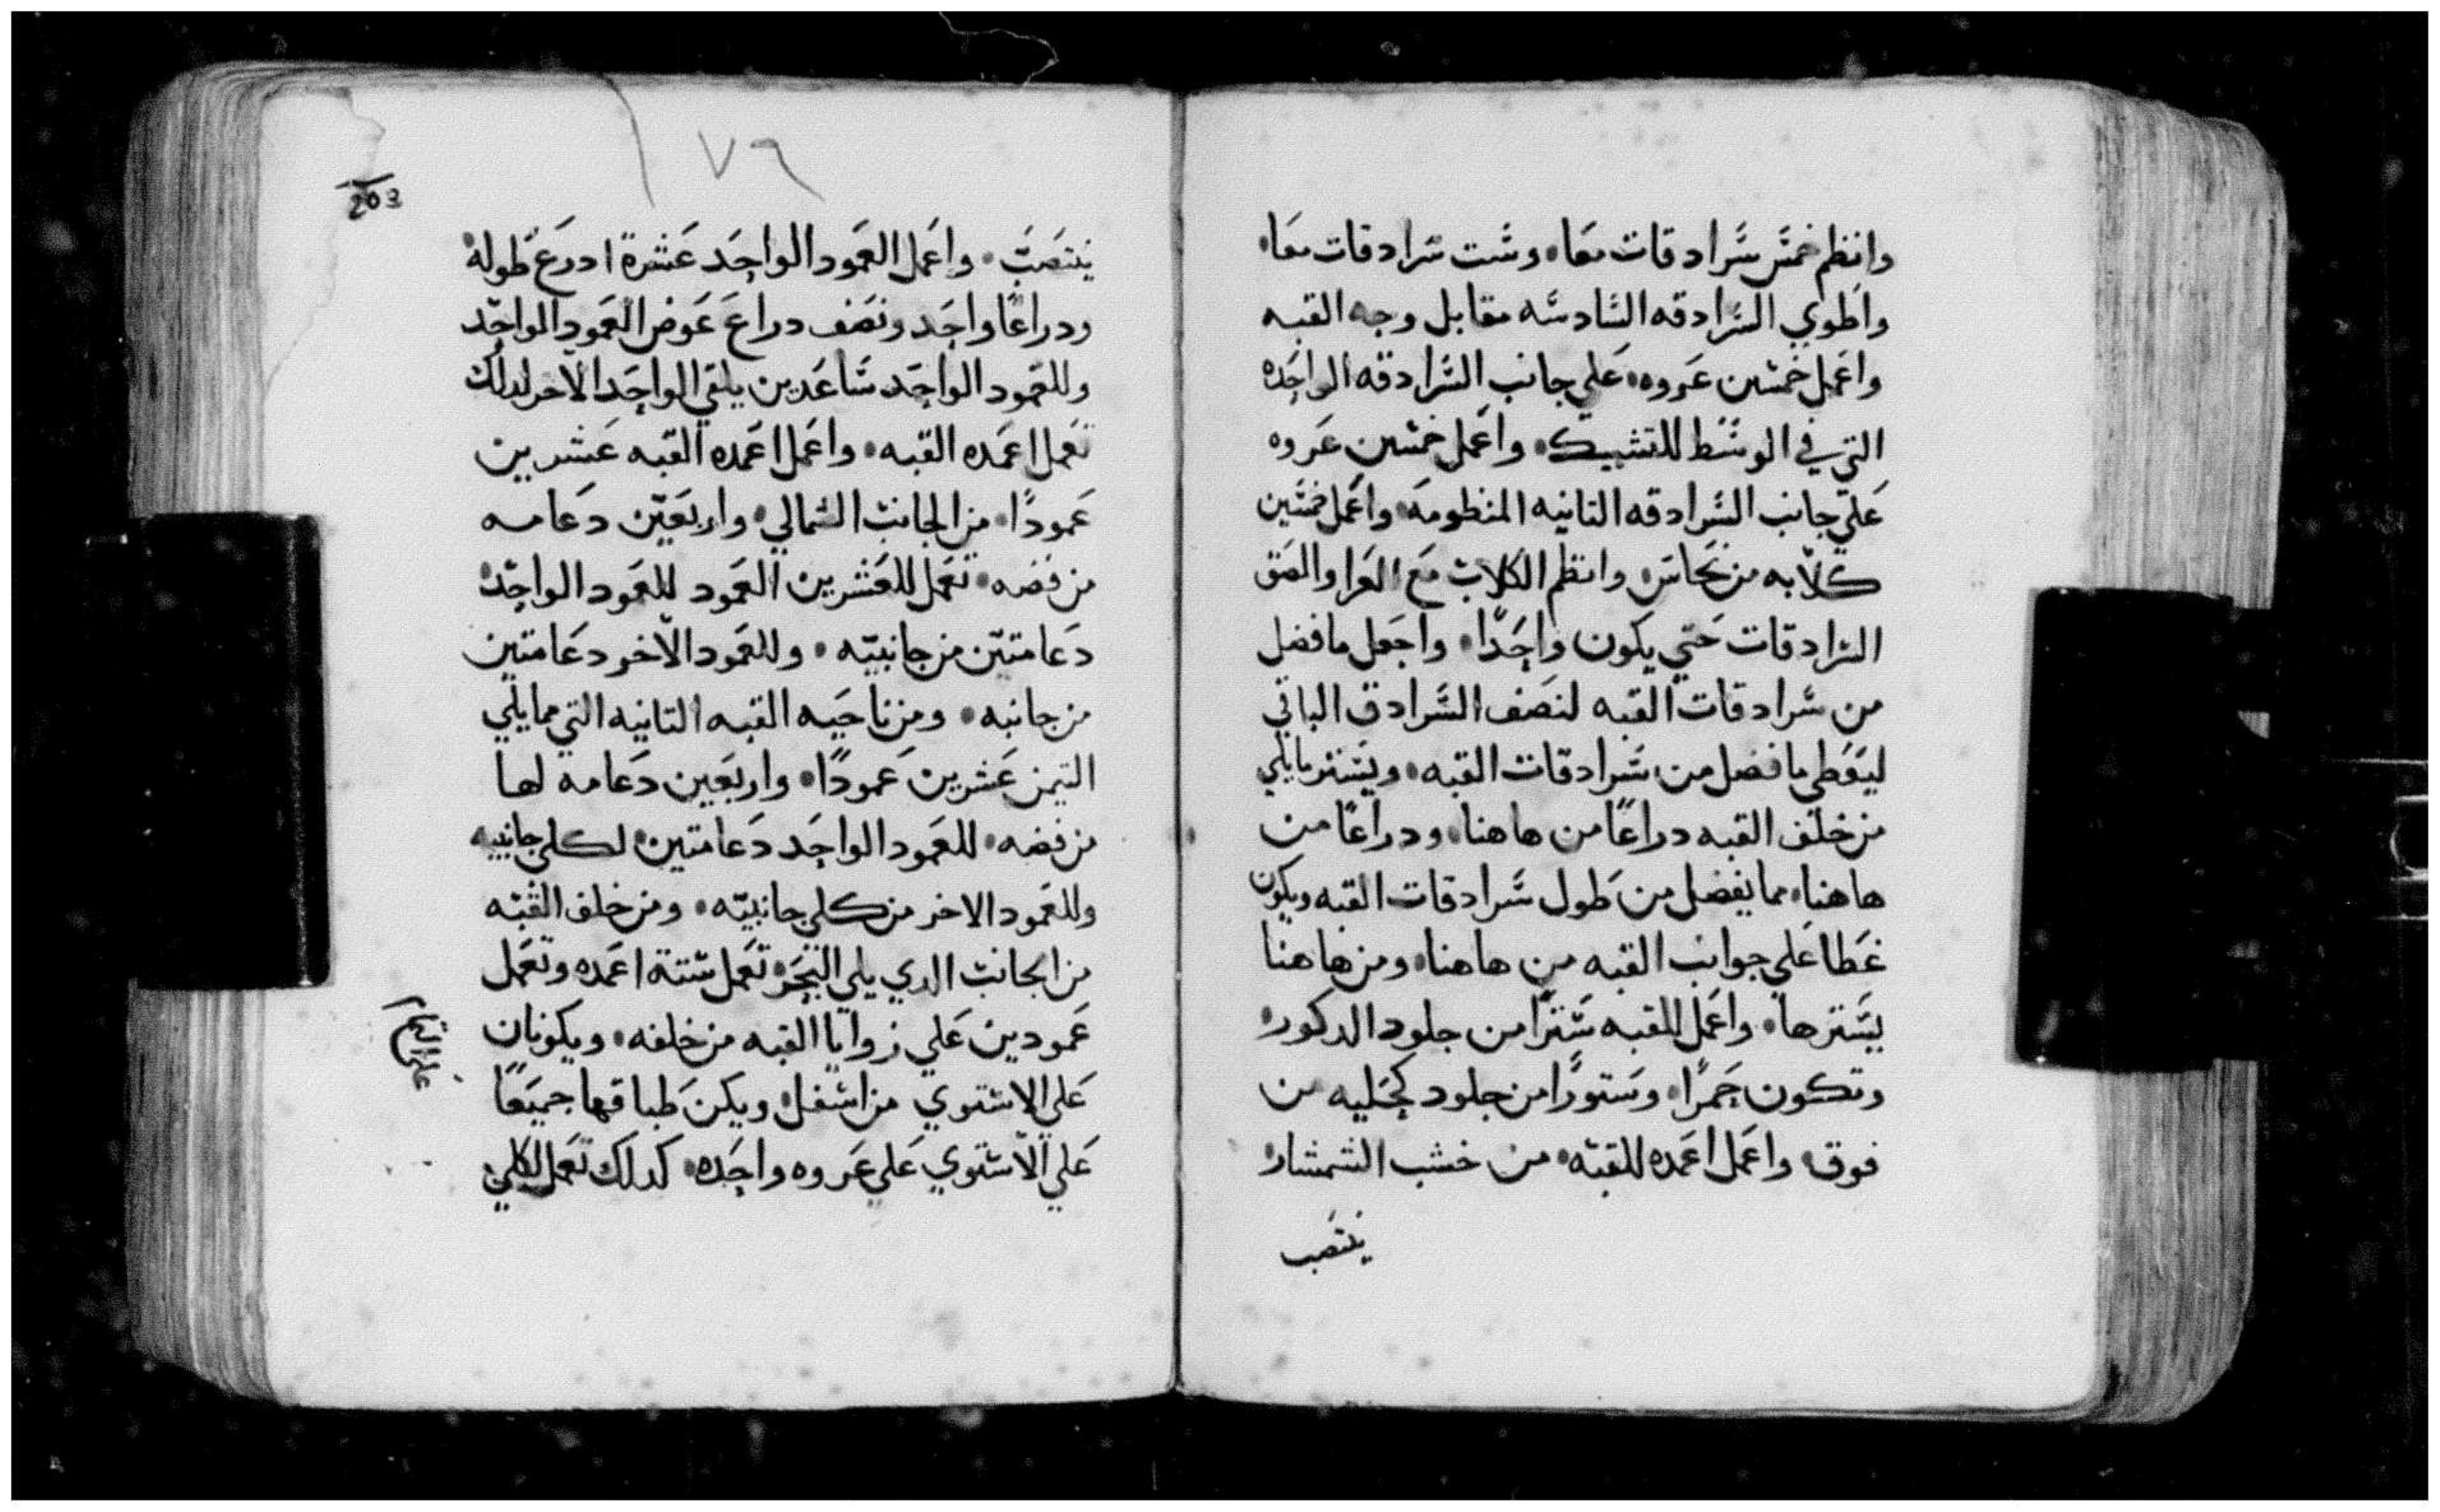 وانظم خمس سرادقات معا، وست سرادقات معا،
واطوي السرادقه السادسه مقابل وجه القبه
واعمل خمسين عروه، علي جانب السرادقه الواحده
التي في الوسط للتشبيك، واعمل خمسين عروه
علي جانب السرادقه التانيه المنظومه، واعمل خمسين
كلابه من نحاس، وانظم الكلاب مع العرا والصق
السرادقات حتي يكون واحدًا، واجعل ما فضل
من سرادقات القبه لنصف السرادق الباقي
ليغطي ما فضل من سرادقات القبه، ويستر ما يلي
من خلف القبه دراعًا من هاهنا، ودراعًا من
هاهنا، مما يفضل من طول سرادقات القبه ويكون
غطا علي جوانب القبه من هاهنا، ومن هاهنا
يسترها، واعمل للقبه سترًا من جلود الدكور،
وتكون حمرًا، وستورًا من جلود كحليه من
فوق، واعمل اعمده للقبه، من خشب الشمشار،
ينتصب
١٧٦
203
ينتصب، واعمل العمود الواحد عشرة ادرع طوله،
ودراعًا واحد ونصف دراع عوض العمود الواحد
وللعمود الواحد ساعدين يلقي الواحد الاخر لدلك
تعمل اعمده القبه، واعمل اعمده القبه عشرين
عمودًا، من الجانب الشمالي، واربعين دعامه
من فضه، تعمل للعشرين العمود للعمود الواحد،
دعامتين من جانبيه، وللعمود الاخر دعامتين
من جانبه، ومن ناحيه القبه التانيه التي مما يلي
التيمن عشرين عمودًا، واربعين دعامه لها
من فضه، للعمود الواحد دعامتين، لكلي جانبيه
وللعمود الاخر من كلي جانبيه، ومن خلف القبه
من الجانب الدي يلي البحر، تعمل ستة اعمده وتعمل
عمودين علي زوايا القبه من خلفه، ويكونان
علي الاستوي من اسفل، ويكن طباقها جميعًا
علي الاستوي علي عروه واحده، كدلك تعمل لكلي
علي التمام